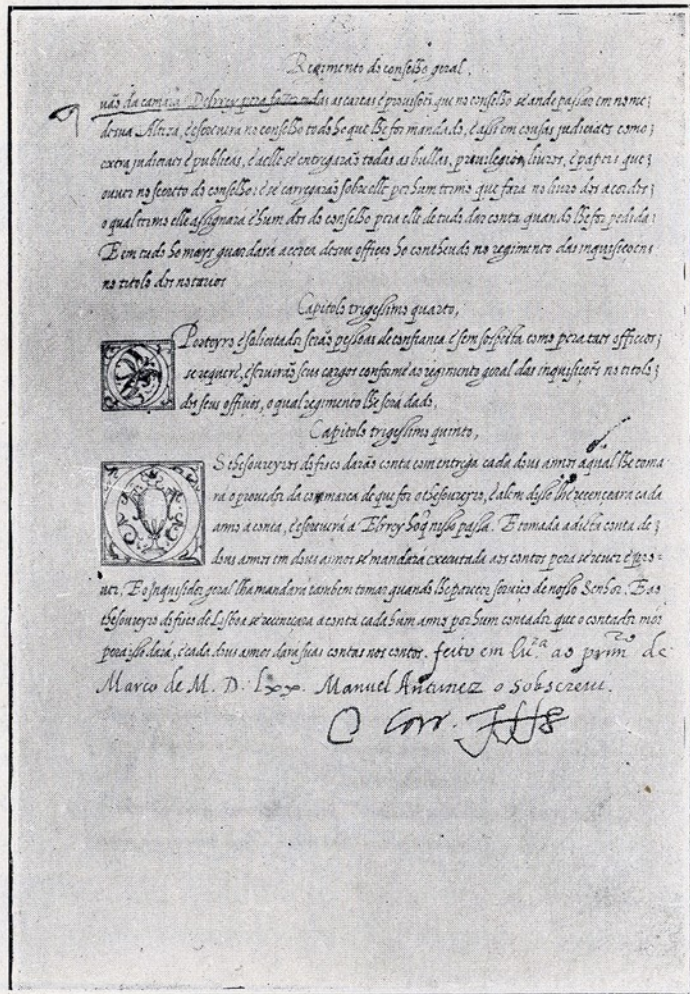 Regimento do conselho geral.
vão da camara Delrrey pera fazer todas as cartas e provisões que no conselho se ande passar em nome;
de sua Alteza, e escreuera no conselho todo he que lhe for mandado, e assi em cousas judiciaes como;
extra judiciaes e publicas, e a elle se entregarão todas as bullas, privilegios, liuros, e papeis que;
ouuer no secreto do conselho: e se carregarão sobre elle per hum termo que fara no liuro dos acordos;
o qual termo elle assignara e hum dos do conselho pera elle de tudo dar conta quando lhe for pedida:
E em tudo ho mais guardara acerca de seu officio ho contheudo no regimento das inquisições
no titolo dos notarios
Capitolo trigessimo quarto,
Porteyro e solicitador serão pessoas de confiança e sem sospeita como pera taes officios;
se requere, e seruirão seus cargos conforme ao regimento geral das inquisições no titolo;
dos seus officios, o qual regimento lhe sera dado,
Capitolo trigessimo quinto,
OS thesoureyros do fisco darão conta com entrega cada dous annos a qual lhe toma
ra o prouedor da comarca de que for o thesoureyro, e alem disso lhe recenceara cada
anno a conta, e escreuerá a Elrrey ho q̃ nisso passa. E tomada a dicta conta de;
dous annos em dous annos se mandará executada aos contos pera se reuer e pro=
uer; E o Inquisidor geral lha mandará tambem tomar quando lhe parecer seruiço de nosso Senhor. E ao
thesoureyro do fisco de Lisboa se recenceara a conta cada hum anno per hum contador que o contador mór
pera isso dará, e cada dous annos dará suas contas nos contos. feito em lix.ª ao prim.ro de
Março de M. D. Lxx. Manuel Antunez o sobscreui.